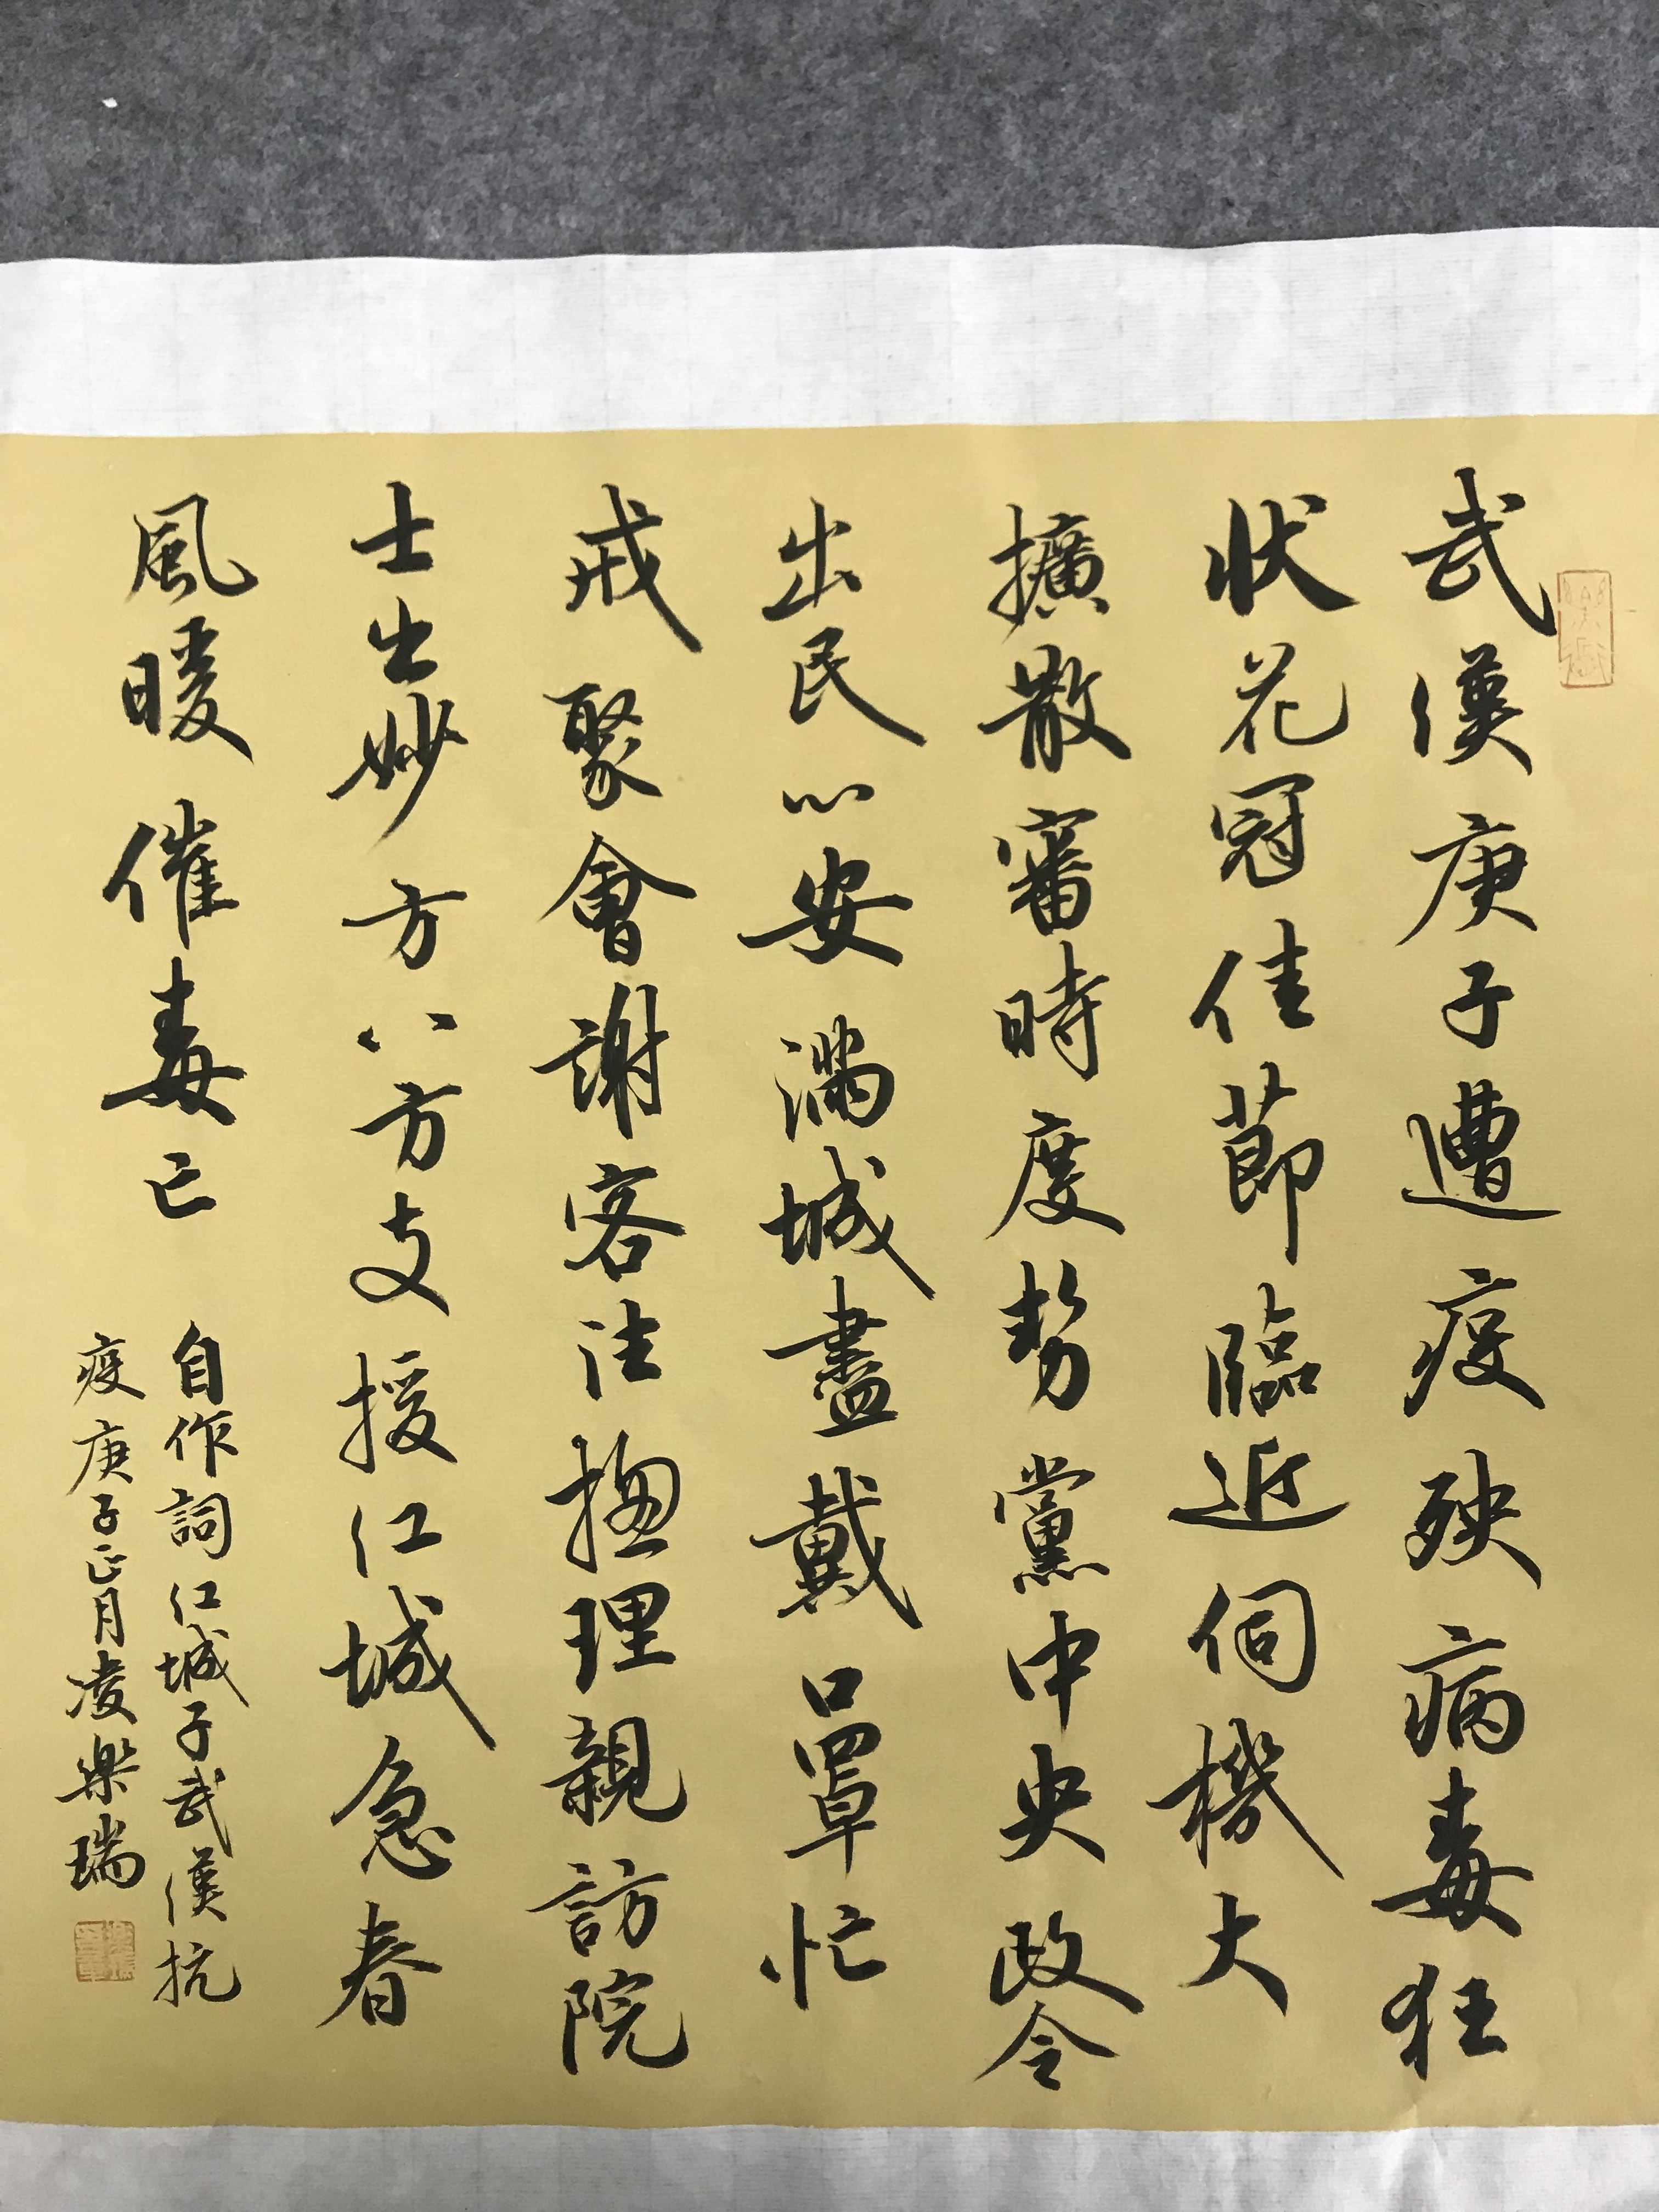 武漢庚子遭疫殃病毒狂
狀花冠佳節臨近伺機大
擴散審時度勢黨中央政令
出民心安滿城盡戴口罩忙
戒聚會謝客注揔理親訪院
士出妙方八方支援江城急春
風暖催毒亡
自作詞江城子武漢抗
疫庚子正月凌樂瑞